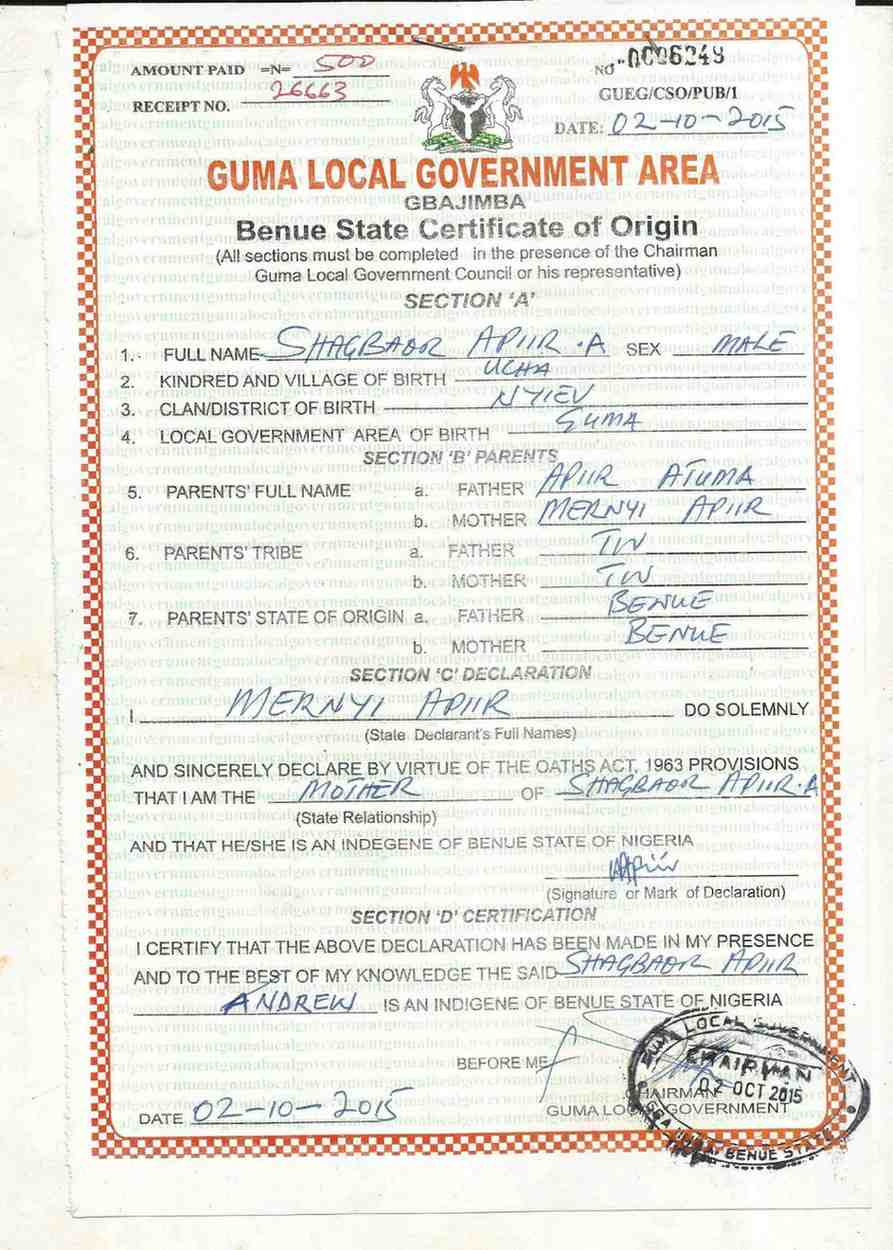 AMOUNT PAID =N= 500
RECEIPT NO. 26663
NO 0006249
GUEG/CSO/PUB/1
DATE: 02-10-2015
GUMA LOCAL GOVERNMENT AREA
GBAJIMBA
Benue State Certificate of Origin
(All sections must be completed in the presence of the Chairman
Guma Local Government Council or his representative)
SECTION 'A'
1. FULL NAME SHAGBAOR APIIR .A SEX MALE
2. KINDRED AND VILLAGE OF BIRTH UCHA
3. CLAN/DISTRICT OF BIRTH NYIEV
4. LOCAL GOVERNMENT AREA OF BIRTH GUMA
SECTION 'B' PARENTS
5. PARENTS' FULL NAME a. FATHER APIIR ATUMA
b. MOTHER MERNYI APIIR
6. PARENTS' TRIBE a. FATHER TIV
b. MOTHER TIV
7. PARENTS' STATE OF ORIGIN a. FATHER BENUE
b. MOTHER BENUE
SECTION 'C' DECLARATION
I MERNYI APIIR DO SOLEMNLY
(State Declarant's Full Names)
AND SINCERELY DECLARE BY VIRTUE OF THE OATHS ACT, 1963 PROVISIONS
THAT I AM THE MOTHER OF SHAGBAOR APIIR.A
(State Relationship)
AND THAT HE/SHE IS AN INDEGENE OF BENUE STATE OF NIGERIA
(Signature or Mark of Declaration)
SECTION 'D' CERTIFICATION
I CERTIFY THAT THE ABOVE DECLARATION HAS BEEN MADE IN MY PRESENCE
AND TO THE BEST OF MY KNOWLEDGE THE SAID SHAGBAOR APIIR
ANDREW IS AN INDIGENE OF BENUE STATE OF NIGERIA
BEFORE ME
CHAIRMAN
GUMA LOCAL GOVERNMENT
DATE 02-10-2015
GUMA LOCAL GOVERNMENT
CHAIRMAN
02 OCT 2015
BENUE STATE